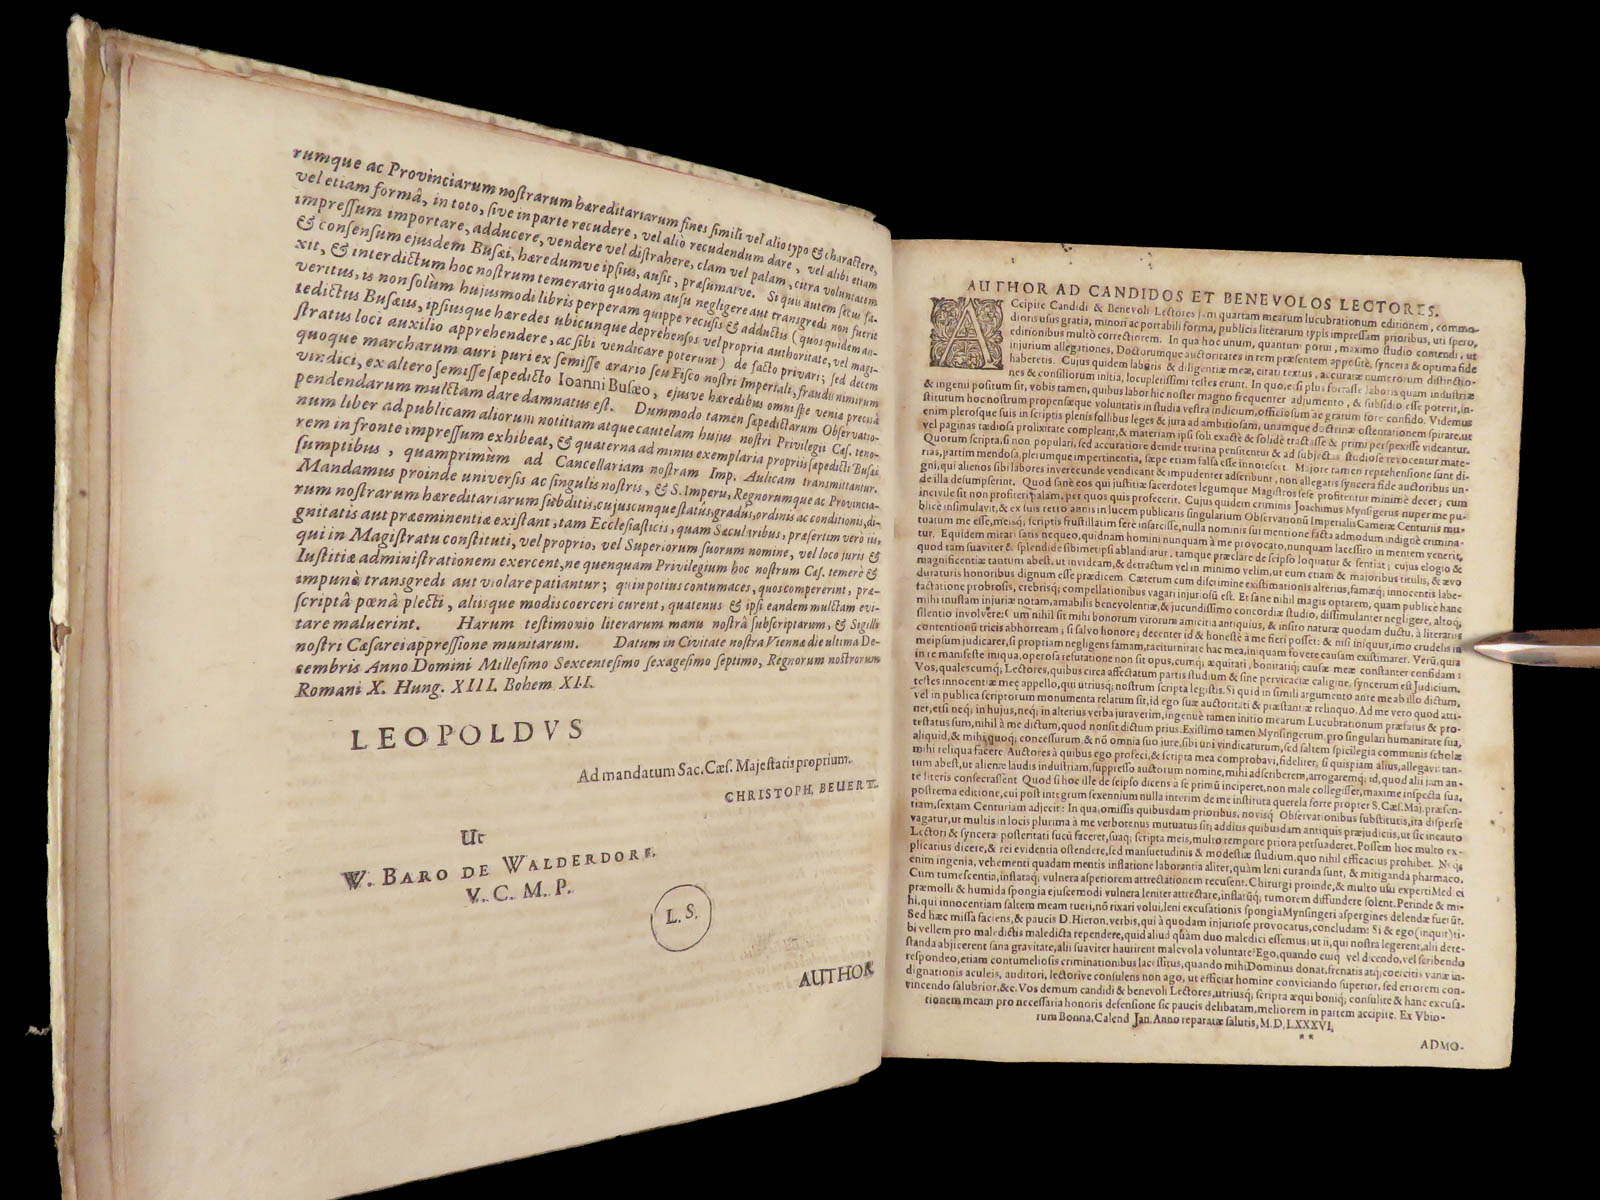 rumque ac Provinciarum noſtrarum hæreditariarum fines ſimili vel alio typo & charactere,
vel etiam formâ, in toto, ſive in parte recudere, vel aliò recudendum dare, vel alibi etiam
impreſſum importare, adducere, vendere vel diſtrahere, clam vel palam, citra voluntatem
& conſenſum ejusdem Buſæi, hæredumve ipſius, auſit, præſumatve. Si quis autem ſecus fa-
xit, & interdictum hoc noſtrum temerario quodam auſu negligere aut transgredi non fuerit
veritus, is non ſolùm hujusmodi libris perperam quippe recuſis & adductis (quos quidem an-
tedictus Buſæus, ipſiusque hæredes ubicunque deprehenſos vel propria authoritate, vel magi-
ſtratus loci auxilio apprehendere, ac ſibi vendicare poterunt) de facto privari; ſed decem
quoque marcharum auri puri ex ſemiſſe ærario ſeu Fiſco noſtri Imperiali, fraudis nimirum
vindici, ex altero ſemiſſe ſæpedicto Ioanni Buſæo, ejusve hæredibus omni ſpe veniæ preciſâ
pendendarum mulctam dare damnatus eſt. Dummodo tamen ſæpedictarum Obſervatio-
num liber ad publicam aliorum notitiam atque cautelam hujus noſtri Privilegii Cæſ. teno-
rem in fronte impreſſum exhibeat, & quaterna ad minus exemplaria propriis ſæpedicti Buſæi
ſumptibus, quamprimùm ad Cancellariam noſtram Imp. Aulicam transmittantur.
Mandamus proinde universis ac ſingulis noſtris, & S. Imperii, Regnorumque ac Provincia-
rum noſtrarum hæreditariarum ſubditis, cujuscunque ſtatûs, gradus, ordinis ac conditionis, di-
gnitatis aut præeminentiæ exiſtant, tam Eccleſiaſticis, quam Sæcularibus, præſertim verò iis,
qui in Magiſtratu conſtituti, vel proprio, vel Superiorum ſuorum nomine, vel loco juris &
Iuſtitiæ adminiſtrationem exercent, ne quenquam Privilegium hoc noſtrum Cæſ. temerè &
impunè transgredi aut violare patiantur; quin potius contumaces, quos compererint, præ-
ſcriptâ pœnâ plecti, aliisque modis coerceri curent, quatenus & ipſi eandem mulctam evi-
tare maluerint. Harum teſtimonio literarum manu noſtrâ ſubſcriptarum, & Sigilli
noſtri Cæſarei appreſſione munitarum. Datum in Civitate noſtra Viennæ die ultima De-
cembris Anno Domini Milleſimo Sexcenteſimo ſexageſimo ſeptimo, Regnorum noſtrorum
Romani X. Hung. XIII. Bohem XII.
LEOPOLDVS
Ad mandatum Sac. Cæſ. Majeſtatis proprium.
CHRISTOPH. BEUERT.
Ut
W. BARO DE WALDERDORF.
V. C. M. P.
L. S.
AUTHOR
AUTHOR AD CANDIDOS ET BENEVOLOS LECTORES.
ACcipite Candidi & Benevoli Lectores jam quartam mearum lucubrationum editionem, commo-
dioris uſus gratia, minori ac portabili forma, publicis literarum typis impreſſam prioribus, uti ſpero,
editionibus multò correctiorem. In qua hoc unum, quantum potui, maximo ſtudio contendi, ut
injurium allegationes, Doctorumque auctoritates in rem præſentem appoſitè, ſyncera & optima fide
haberetis. Cujus quidem laboris & diligentiæ meæ, citati textus, accuratæ numerorum diſtinctio-
nes & conſiliorum initia, locupletiſſimi teſtes erunt. In quo, etſi plus fortaſſe laboris quam induſtriæ
& ingenii poſitum ſit, vobis tamen, quibus labor hic noſter magno frequenter adjumento, & ſubſidio eſſe poterit, in-
ſtitutum hoc noſtrum propenſæque voluntatis in ſtudia veſtra indicium, officioſum ac gratum fore confido. Videmus
enim pleroſque ſuis in ſcriptis plenis follibus leges & jura ad ambitioſam, unamque doctrinæ oſtentationem ſpirare, ut
vel paginas tædioſa prolixitate compleant, & materiam ipſi ſoli exactè & ſolidè tractaſſe & primi perſpexiſſe videantur.
Quorum ſcripta, ſi non populari, ſed accuratiore deinde trutina penſitentur & ad ſubjectas ſtudioſe revocentur mate-
rias, partim mendoſa, plerumque impertinentia, ſæpe etiam falſa eſſe innoteſcet. Majore tamen reprehenſione ſunt di-
gni, qui alienos ſibi labores inverecunde vendicant & impudenter adſcribunt, non allegatis ſyncera fide auctoribus un-
de illa deſumpſerint. Quod ſanè eos qui juſtitiæ ſacerdotes legumque Magiſtros ſeſe profitentur minimè decet; cum
incivile ſit non profiteri palam, per quos quis profecerit. Cujus quidem criminis Joachimus Mynſigerus nuper me pu-
blicè inſimulavit, & ex ſuis retro annis in lucem publicatis ſingularium Obſervationū Imperialis Cameræ Centuriis mu-
tuatum me eſſe, meiſq; ſcriptis fruſtillatim ferè inſarciſſe, nulla nominis ſui mentione facta admodum indignè crimina-
tur. Equidem mirari ſatis nequeo, quidnam homini nunquam à me provocato, nunquam laceſſito in mentem venerit,
quod tam ſuaviter & ſplendide ſibimetipſi ablandiatur, tamque præclare de ſcipſo loquatur & ſentiat; cujus elogio &
magnificentiæ tantum abeſt, ut invideam, & detractum vel in minimo velim, ut eum etiam & majoribus titulis, & ævo
duraturis honoribus dignum eſſe prædicem. Cæterum cum diſcrimine exiſtimationis alterius, famæq; innocentis labe-
factatione probroſis, crebriſq; compellationibus vagari injurioſū eſt. Et ſane nihil magis optarem, quam publicè hanc
mihi inuſtam injuriæ notam, amabilis benevolentiæ, & jucundiſſimo concordiæ ſtudio, diſſimulanter negligere, altoq;
ſilentio involvere: Cum nihil ſit mihi bonorum virorum amicitia antiquius, & inſito naturæ quodam ductu, à literariis
contentionū tricis abhorream; ſi ſalvo honore; decenter id & honeſtè à me fieri poſſet: & niſi iniquus, imo crudelis in
meipſum judicarer, ſi propriam negligens famam, taciturnitate hac mea, iniquam fovere cauſam exiſtimarer. Verū, quia
in re manifeſte iniqua, operoſa refutatione non ſit opus, cumq; æquitati, bonitatiq; cauſæ meæ conſtanter confidam:
Vos, qualescumq; Lectores, quibus circa affectatum partis ſtudium & ſine pervicaciæ caligine, ſyncerum eſt Judicium,
teſtes innocentiæ meæ appello, qui utriuſq; noſtrum ſcripta legiſtis. Si quid in ſimili argumento ante me ab illo dictum,
vel in publica ſcriptorum monumenta relatum ſit, id ego ſuæ auctoritati & præſtantiæ relinquo. Ad me vero quod atti-
net, etſi neq; in hujus, neq; in alterius verba juraverim, ingenuè tamen initio mearum Lucubrationum præfatus & pro-
teſtatus ſum, nihil à me dictum, quod non ſit dictum prius. Exiſtimo tamen Mynſingerum, pro ſingulari humanitate ſua,
aliquid, & mihi quoq; conceſſurum, & nō omnia ſuo jure, ſibi uni vindicaturum, ſed ſaltem ſpicilegia communis ſcholæ
mihi reliqua facere. Auctores à quibus ego profeci, & ſcripta mea comprobavi, fideliter, ſi quiſpiam alius, allegavi: tan-
tum abeſt, ut alienæ laudis induſtriam, ſuppreſſo auctorum nomine, mihi adſcriberem, arrogaremq; id, quod alii jam an-
te literis conſecraſſent. Quod ſi hoc ille de ſeipſo dicens à ſe primū inciperet, non male collegiſſet, maxime inſpecta ſua,
poſtrema editione, cui poſt integrum ſexennium nulla interim de me inſtituta querela forte propter S. Cæſ. Maj. præſen-
tiam, ſextam Centuriam adjecit: In qua, omiſſis quibusdam prioribus, noviſq; Obſervationibus ſubſtitutis, ita diſperſe
vagatur, ut multis in locis plurima à me verbotenus mutuatus ſit; addius quibusdam antiquis præjudiciis, ut ſic incauto
Lectori & ſynceræ poſteritati ſucū faceret, ſuaq; ſcripta meis, multo tempore priora perſuaderet. Poſſem hoc multo ex-
plicatius dicere, & rei evidentia oſtendere, ſed manſuetudinis & modeſtiæ ſtudium, quo nihil efficacius prohibet. Neq;
enim ingenia, vehementi quadam mentis inflatione laborantia aliter, quàm leni curanda ſunt, & mitiganda pharmaco.
Cum tumeſcentia, inflataq; vulnera aſperiorem attrectationem recuſent. Chirurgi proinde, & multo uſu experti Medici
præmolli & humida ſpongia ejuſcemodi vulnera leniter attrectare, inflatūq; tumorem diffundere ſolent. Perinde & mi-
hi, qui innocentiam ſaltem meam tueri, nō rixari volui, leni excuſationis ſpongia Mynſingeri aſpergines delendæ fuerūt.
Sed hæc miſſa faciens, & paucis D. Hieron. verbis, qui à quodam injurioſe provocatus, concludam: Si & ego (inquit) ti-
bi vellem pro maledictis maledicta rependere, quid aliud quàm duo maledici eſſemus; ut ii, qui noſtra legerent, alii dete-
ſtanda abjicerent ſana gravitate, alii ſuaviter haurirent malevola voluntate? Ego, quando cuiq; vel dicendo, vel ſcribendo
reſpondeo, etiam contumelioſis criminationibus laceſſitus, quando mihi Dominus donat, frenatis atq; coercitis vanæ in-
dignationis aculeis, auditori, lectorive conſulens non ago, ut efficiar homine conviciando ſuperior, ſed errorem con-
vincendo ſalubrior, &c. Vos demum candidi & benevoli Lectores, utriuſq; ſcripta æqui boniq; conſulite & hanc excuſa-
tionem meam pro neceſſaria honoris defenſione ſic paucis delibatam, meliorem in partem accipite. Ex Vbio-
rum Bonna, Calend Jan. Anno reparatæ ſalutis, M. D. LXXXVI.
**
ADMO-